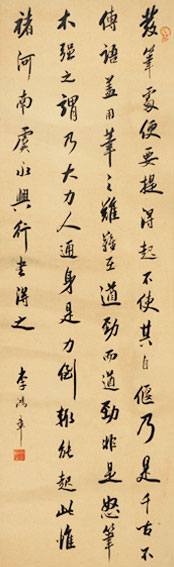 發筆處便要提得起不使其自偃乃是千古不
傳語蓋用筆之難難在遒勁而遒勁非是怒筆
木强之謂乃大力人通身是力倒輒能起此惟
褚河南虞永興行書得之
李鴻章